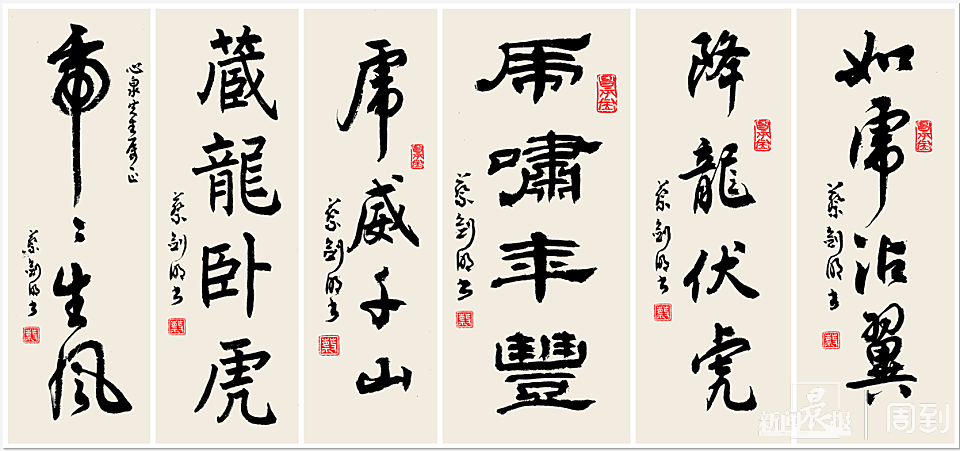 如虎沾翼
蔡剑明书
降龍伏虎
蔡剑明书
虎嘯年豐
蔡剑明书
虎威千山
蔡剑明书
藏龍卧虎
蔡剑明书
心泉先生属正
虎〻生风
蔡剑明书
新闻晨报 周到